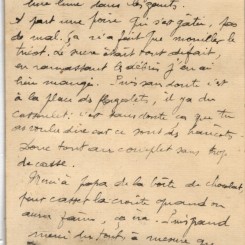 une lime dans les gants.
A part une poire qui s'est gâtée, pas
de mal. Ça n'a fait que mouiller le
tricot. Le sucre était tout défait,
en ramassant les débris j'en ai
bien mangé. Puis sans doute c'est
à la place de flageolets, il y a du
cassoulet, c'est sans doute ce que tu
as voulu dire car ce sont des haricots
Donc tout au complet sans trop
de casse.
Merci à papa de la boîte de chocolat,
pour casser la croûte quand on
aura faim, ça ira. Puis
merci du tout, à mesure que